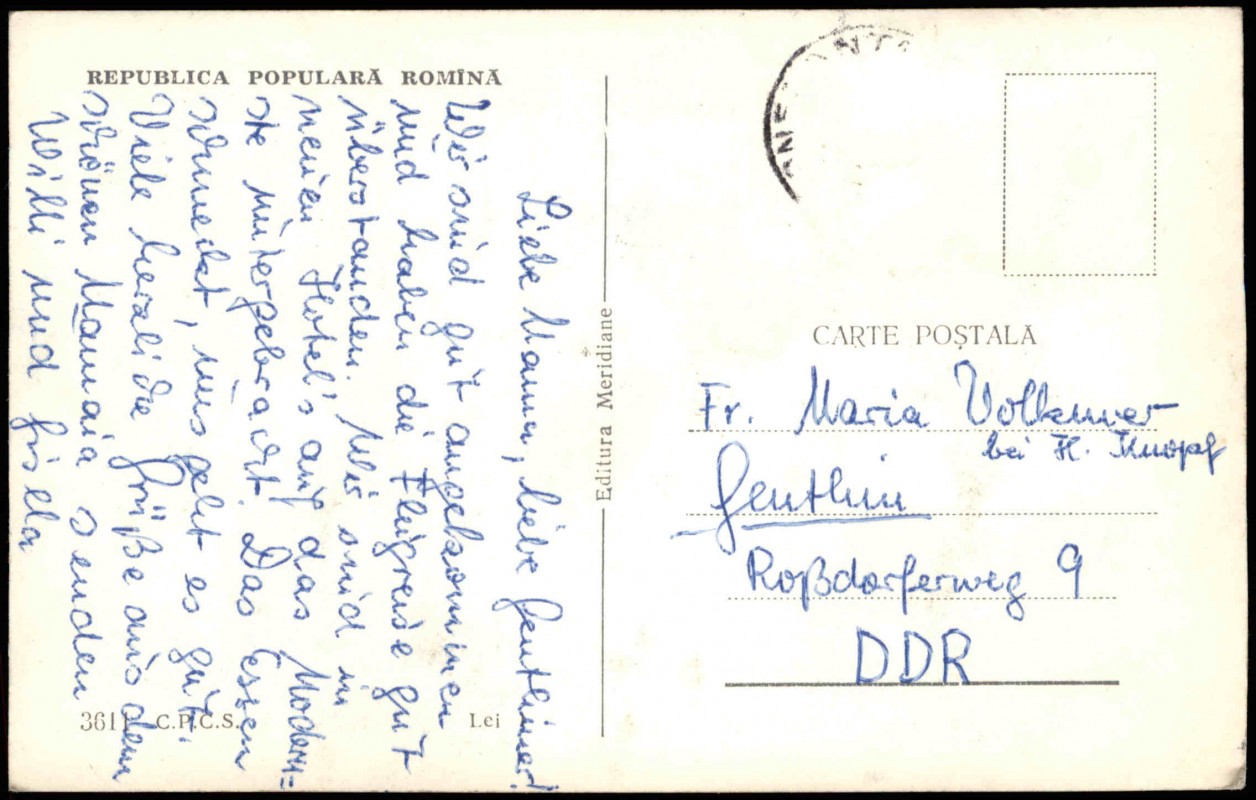 REPUBLICA POPULARĂ ROMÎNĂ
Liebe Mama, liebe Genthiner!
Wir sind gut angekommen
und haben die Flugreise gut
überstanden. Wir sind in
neuen Hotel's auf das Modern=
ste untergebracht. Das Essen
schmeckt, uns geht es gut.
Viele herzliche Grüße aus dem
schönen Mamaia senden
Willi und Gisela
361 C.P.C.S.
Lei
Editura Meridiane
CARTE POȘTALĂ
Fr. Maria Volkmer
bei H. Knopf
Genthin
Roßdorferweg 9
DDR